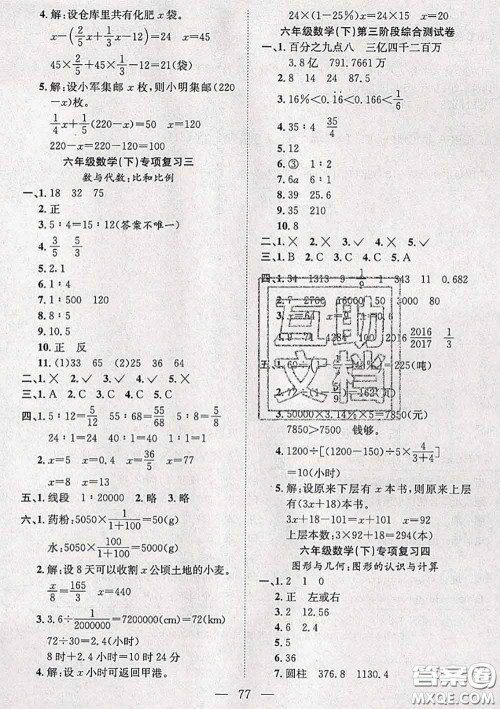 4. 解:设仓库里共有化肥 x 袋。
x-(2/5x+1/3x)=12 x=45
45×2/5+45×1/3-12=21(袋)
5. 解:设小军集邮 x 枚,则小明集邮(220
-x)枚。
1/6x=1/5(220-x) x=120
220-x=220-120=100
六年级数学(下)专项复习三
数与代数:比和比例
一、1. 18 32 75
2. 正
3. 5∶4=15∶12(答案不唯一)
4. 3/5 5/3
5. 2.1
6. 1
7. 2∶1
8. 9
9. 10.5
10. 正 反
11. (1)33 65 (2)25 64
二、1. × 2. ✓ 3. ✓ 4. ✓
三、1. A 2. B 3. A 4. C
四、1. 5∶12=5/12 5∶88=5/88
24∶1=24 40∶1=40
2. x=4 x=0.54 x=2
x=8 x=15/4 x=9
3. x=0.8 x=77
4. x=5 x=24
五、1. 线段 1∶20000 2. 略 3. 略
六、1. 药粉:5050×1/(1+100)=50(g)
水:5050×100/(1+100)=5000(g)
2. 解:设 8 天可以收割 x 公顷土地的小麦。
x/8=165/3 x=440
3. 3.6÷1/2000000=7200000(cm)=72(km)
72÷30=2.4(小时)
8时+2.4小时=10时24分
4. 解:设 x 小时可返回甲港。
24×(1-1/5)x=15x+20
六年级数学(下)第三阶段综合测试卷
一、1. 百分之九点八 三亿四千二百万
3. 8亿 791.7661万
2. 1∶30
3. 16%<0.16<0.166<1/6
4. 35/4 35
5. 18.4
6. ③ 1∶2
7. 6a
8. 135
9. 2
10. 8
二、1. × 2. × 3. ✓ 4. × 5. ✓
三、1. B 2. A 3. C 4. C 5. C
四、1. 34 1313 9 1/9 1 343 11 0.682
2. 7 2700 16000 50 3000
x=9
3. 50000×3.14%×5=7850(元)
7850>7500 钱够。
4. 1200÷[(1200-150)÷5×4/(3+4)]
=10(小时)
5. 解:设原来下层有 x 本书,则原来上层
有(3x+18)本书。
3x+18-101=x+101 x=92
上层本数:3×92+18=294(本)
六年级数学(下)专项复习四
图形与几何:图形的认识与计算
一、1. 2 1 0
2. 正 左或右
3. 2 12.56
4. 2
5. 3
6. 30
7. 圆柱 376.8 1130.4
77
互助
文肯
答案圈
MXQE.COM